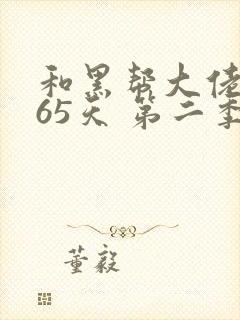 和黑帮大佬
65天 第二季
董毅